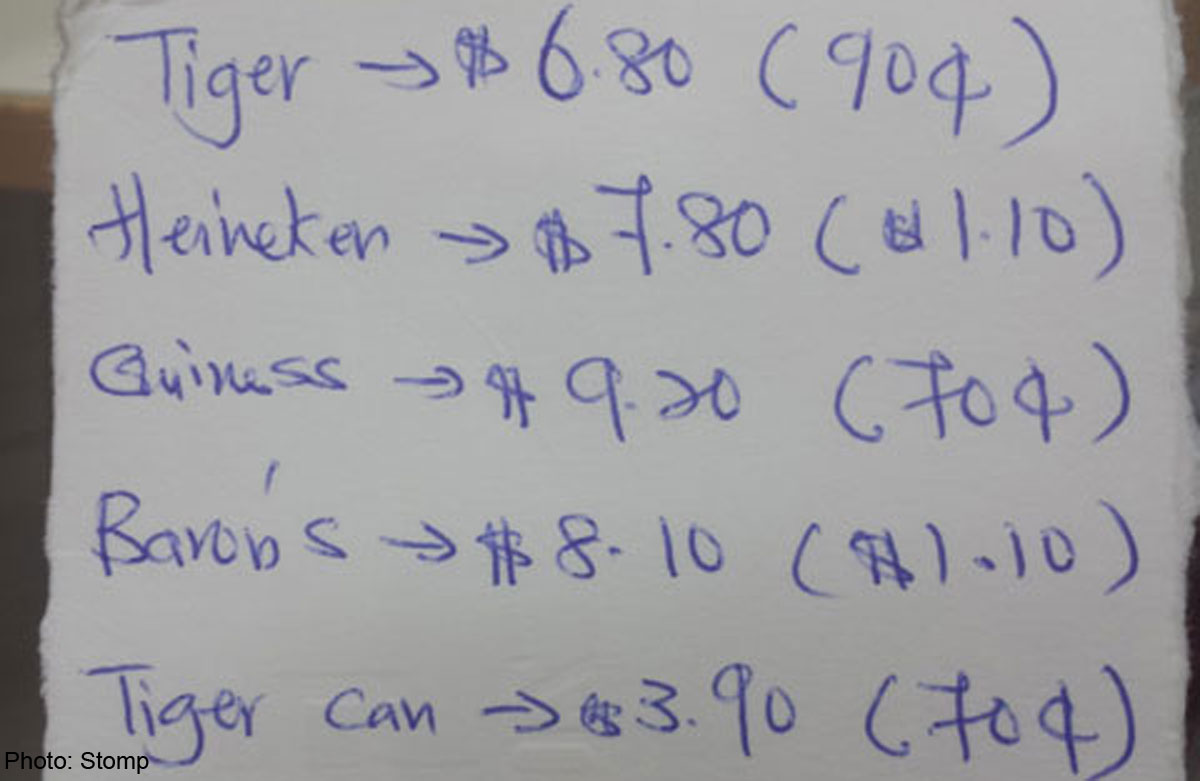 Tiger → $ 6.80 (90¢)
Heineken → $ 7.80 ($1.10)
Guiness → $ 9.20 (70¢)
Baron's → $ 8.10 ($1.10)
Tiger can → $3.90 (70¢)
Photo: Stomp